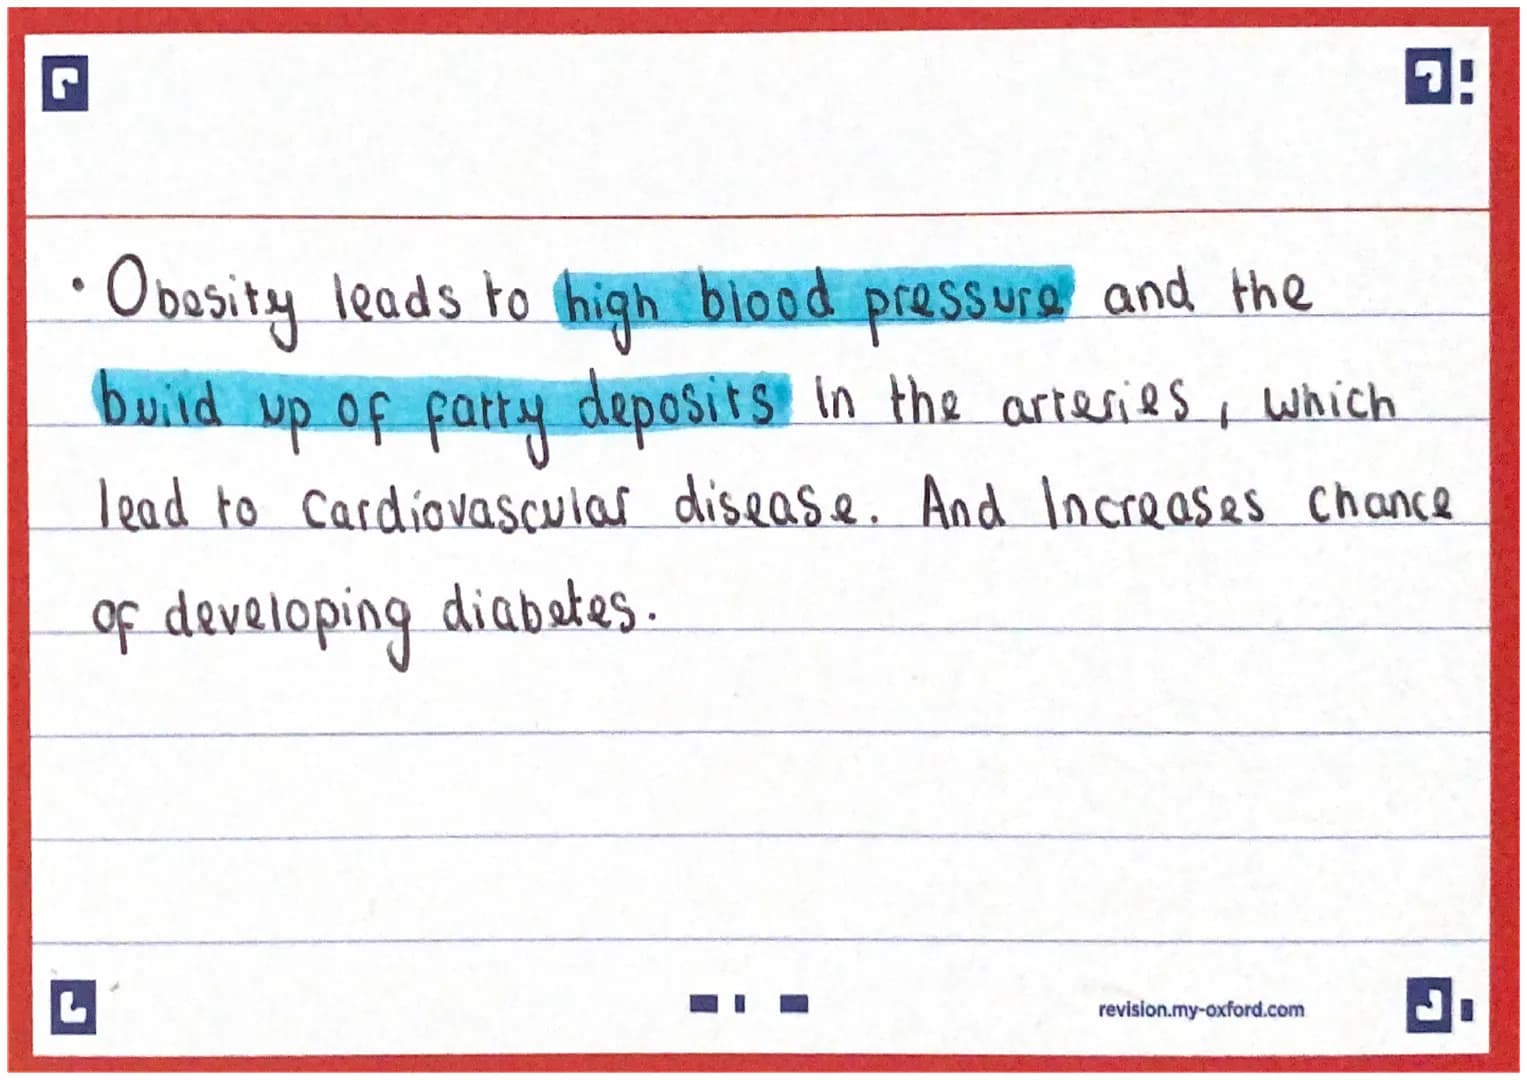 · Obesity leads to high blood pressure and the
build up of fatty deposits in the arteries, which
lead to cardiovascular disease. And Increases chance
of developing diabetes.
revision.my-oxford.com